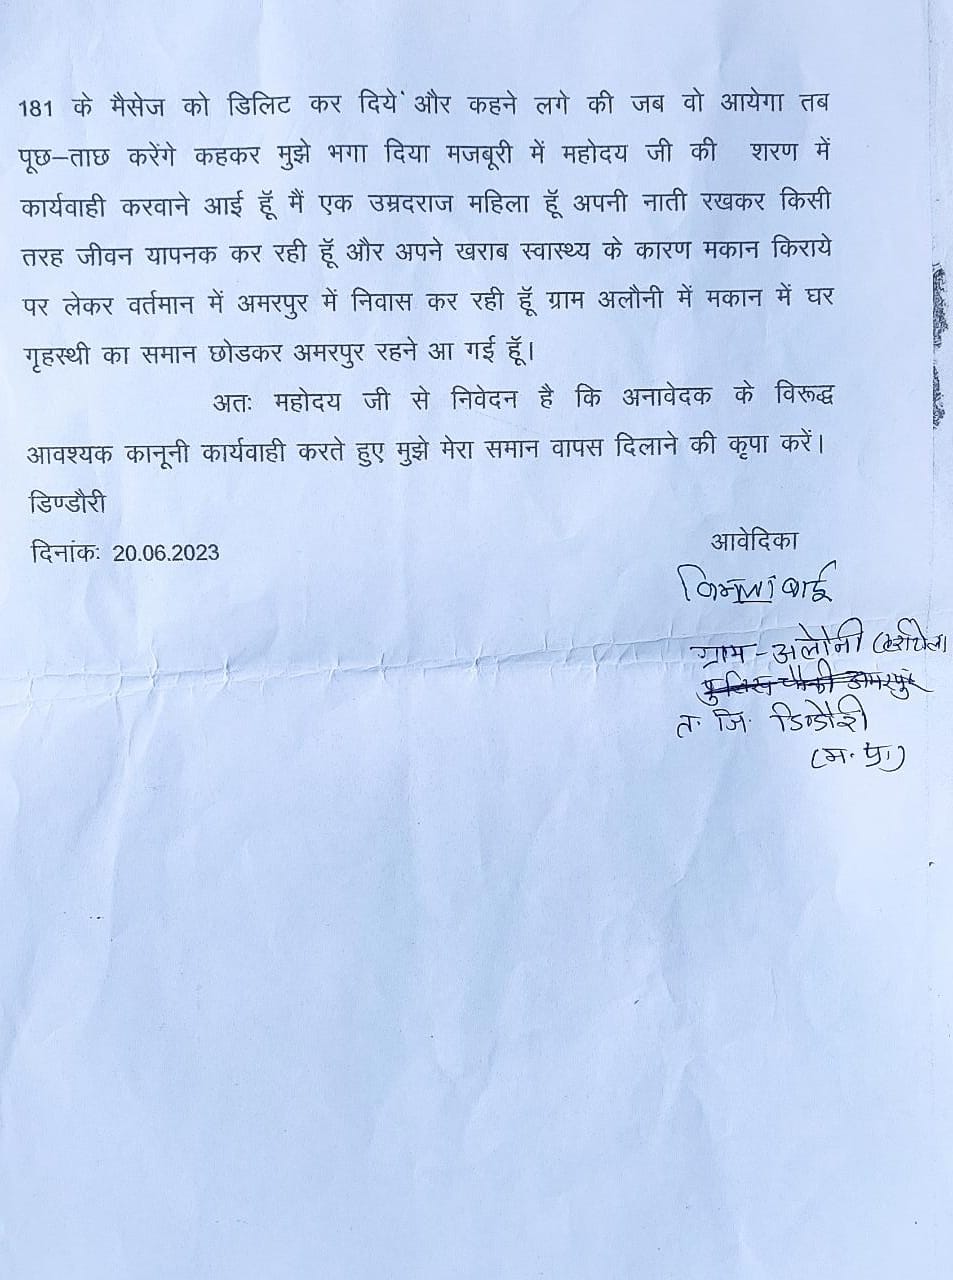 181 के मैसेज को डिलिट कर दिये और कहने लगे की जब वो आयेगा तब
पूछ–ताछ करेंगे कहकर मुझे भगा दिया मजबूरी में महोदय जी की शरण में
कार्यवाही करवाने आई हूॅ मैं एक उम्रदराज महिला हूॅ अपनी नाती रखकर किसी
तरह जीवन यापनक कर रही हूॅ और अपने खराब स्वास्थ्य के कारण मकान किराये
पर लेकर वर्तमान में अमरपुर में निवास कर रही हूॅ ग्राम अलौनी में मकान में घर
गृहस्थी का समान छोडकर अमरपुर रहने आ गई हूॅ।
अतः महोदय जी से निवेदन है कि अनावेदक के विरूद्ध
आवश्यक कानूनी कार्यवाही करते हुए मुझे मेरा समान वापस दिलाने की कृपा करें।
डिण्डौरी
दिनांकः 20.06.2023
आवेदिका
बाई
ग्राम - अलौनी
पुलिस चौकी अमरपुर
त. जि. डिण्डौरी
(म. प्र.)